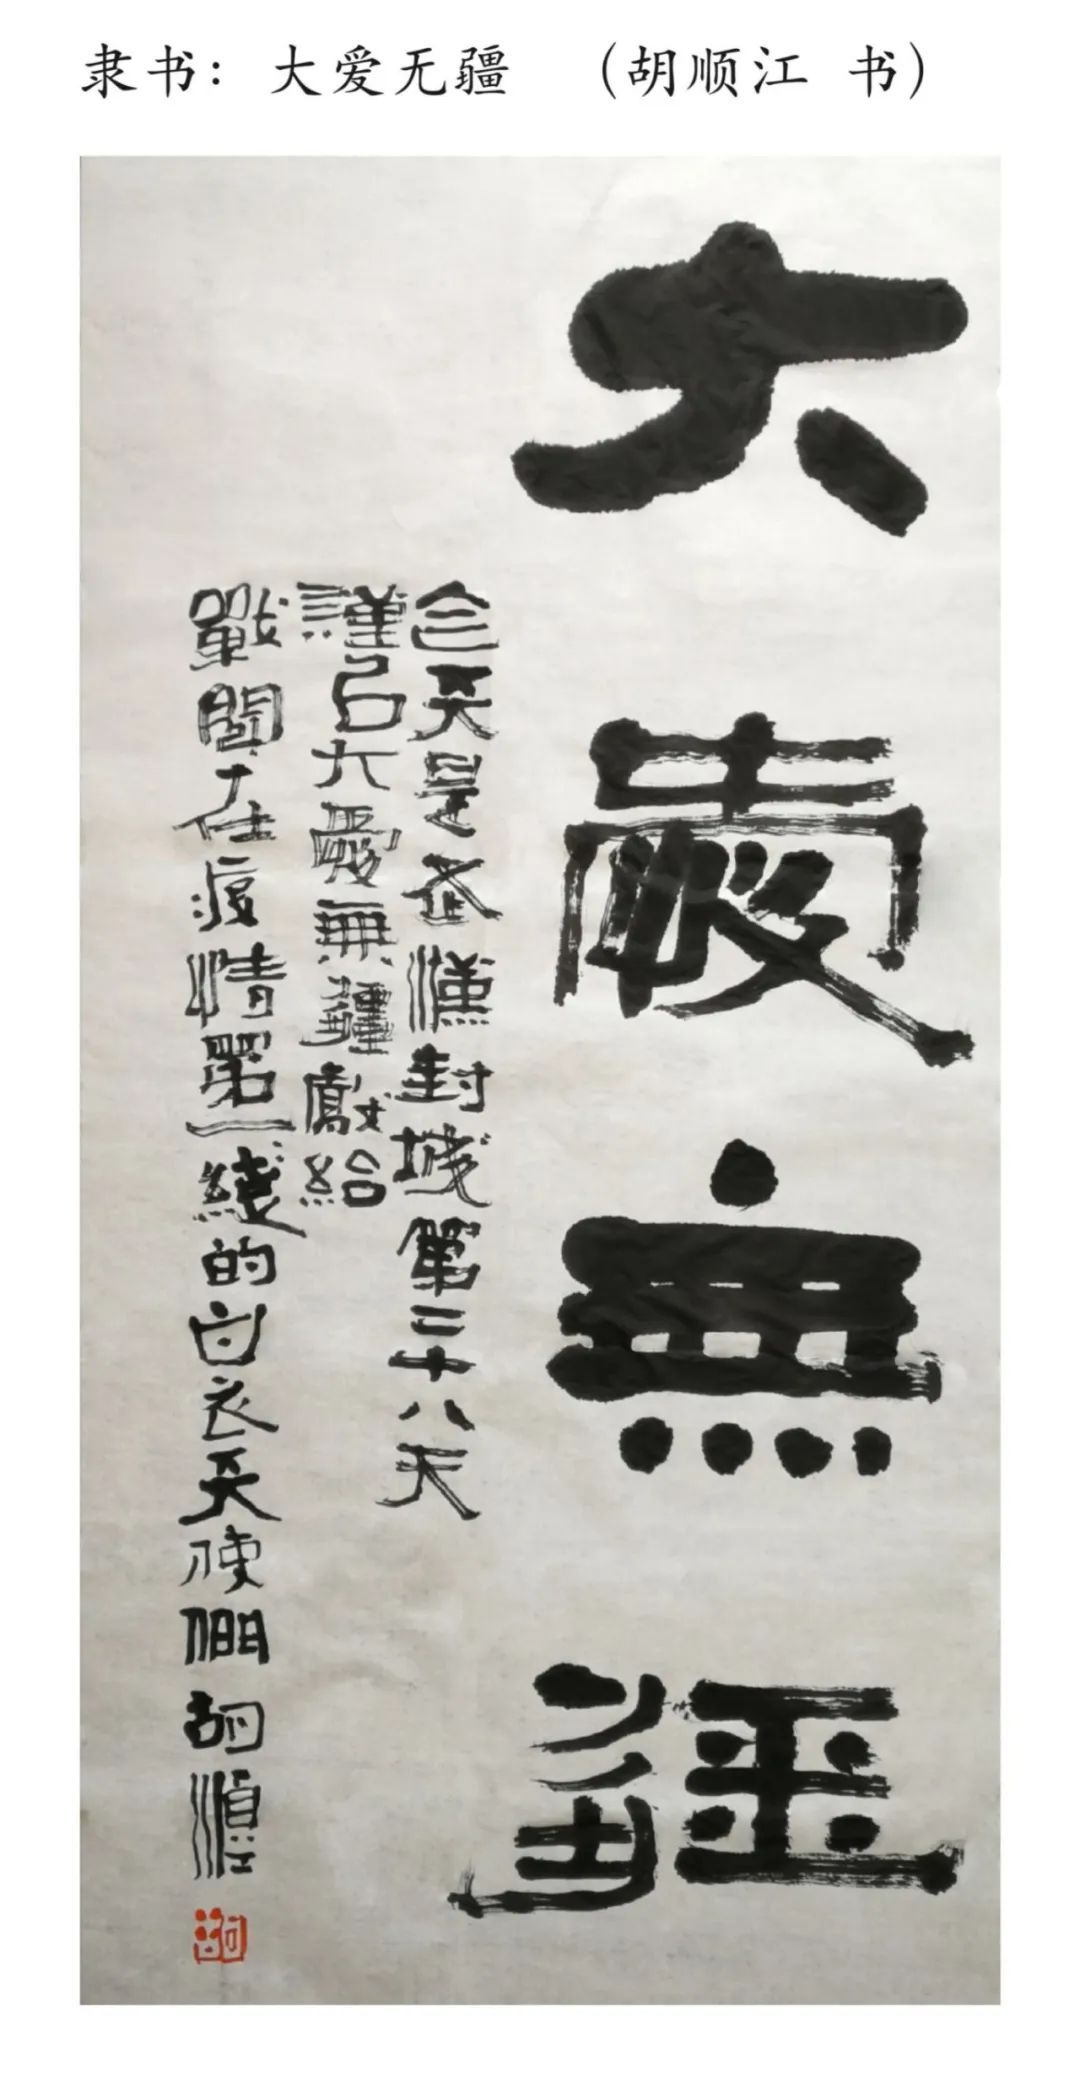 隶书：大爱无疆 （胡顺江 书）
大愛無疆
今天是武漢封城第三十八天
謹以大愛無疆獻給
戰鬭在疫情第一綫的白衣天使們 胡順江